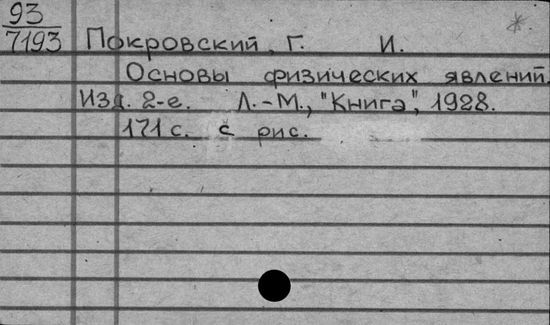 93
7193
Покровский, Г. И.
Основы физических явлений.
Изд. 2-е. Л.-М., "Книга", 1928.
171 с. с рис.